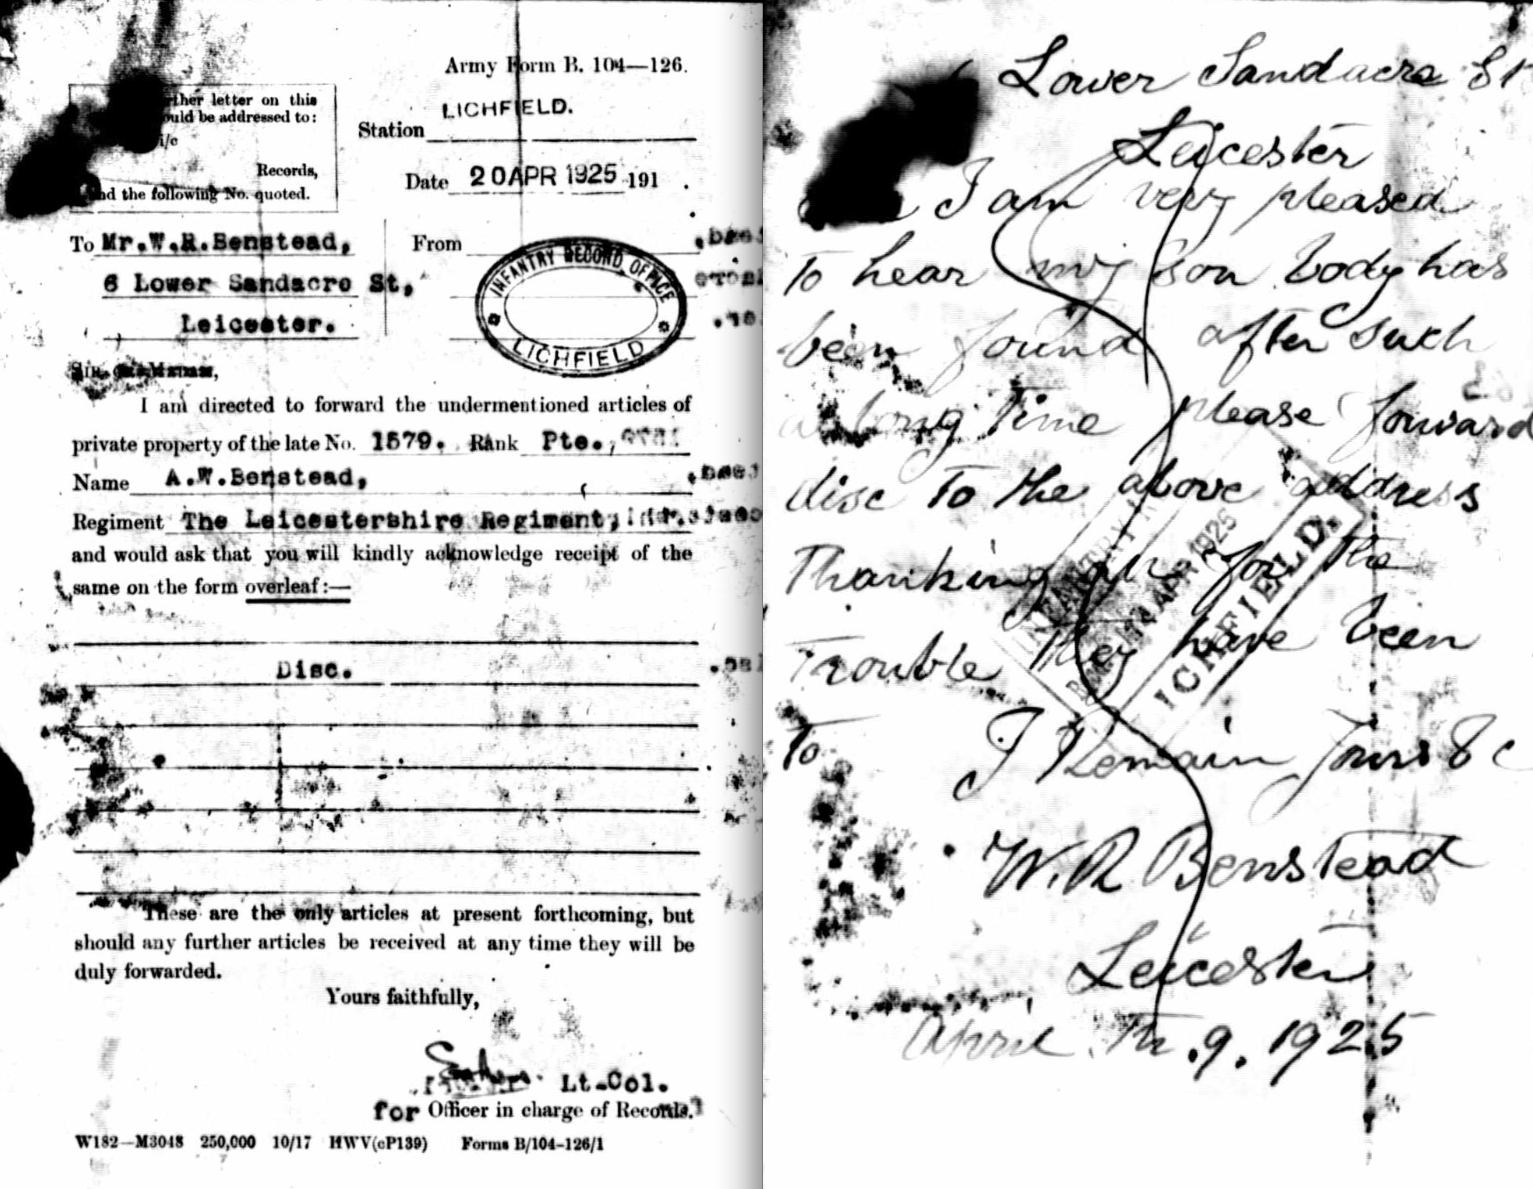 Army Form B. 104—126.
rther letter on this
ould be addressed to:
i/c
Records,
and the following No. quoted.
Station LICHFIELD.
Date 20 APR 1925 191 .
To Mr.W.R.Benstead,
6 Lower Sandacre St,
Leicester.
From
INFANTRY RECORD OFFICE
LICHFIELD
Sir,
I am directed to forward the undermentioned articles of
private property of the late No. 1579. Rank Pte.,
Name A.W.Benstead,
Regiment The Leicestershire Regiment,
and would ask that you will kindly acknowledge receipt of the
same on the form overleaf:—
Disc.
These are the only articles at present forthcoming, but
should any further articles be received at any time they will be
duly forwarded.
Yours faithfully,
Lt-Col.
for Officer in charge of Records.
W182—M3048 250,000 10/17 HWV(cP139) Forms B/104-126/1
Lower Sandacre St
Leicester
I am very pleased
to hear my son body has
been found after such
a long time please forward
disc to the above address
Thanking for the
Trouble they have been
To
I Remain yours &c
W.R Benstead
Leicester
April Th.9.1925
INFANTRY
APR 1925
ICHFIELD.